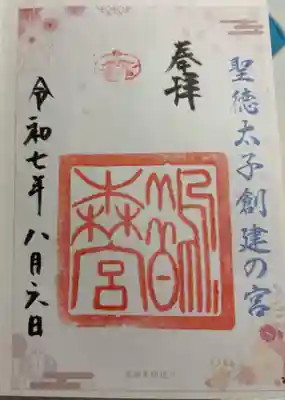 聖徳太子創建の宮
奉拝
鵲森宮
令和七年八月六日